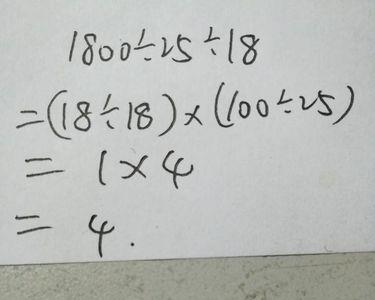 1800÷25÷18
=(18÷18)×(100÷25)
= 1×4
= 4.